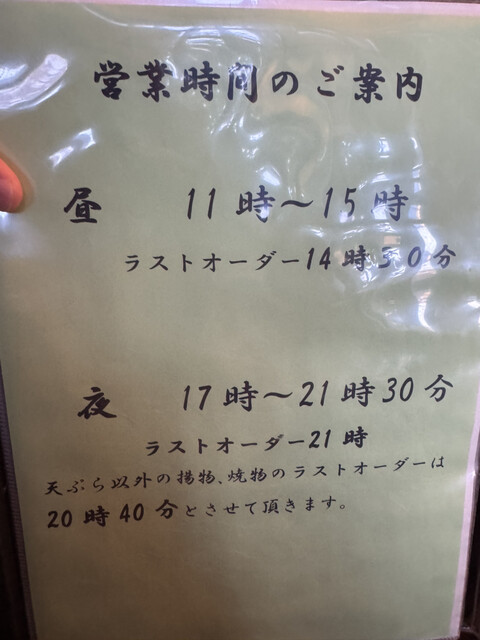 営業時間のご案内
昼 11時～15時
ラストオーダー14時30分
夜 17時～21時30分
ラストオーダー21時
天ぷら以外の揚物、焼物のラストオーダーは
20時40分とさせて頂きます。